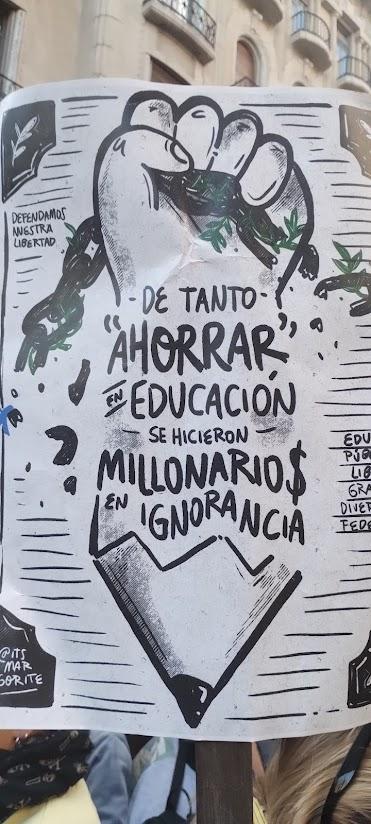 DEFENDAMOS
NUESTRA
LIBERTAD
- DE TANTO -
"AHORRAR"
EN EDUCACIÓN
- SE HICIERON -
MILLONARIO$
EN IGNORANCIA
@ITS
MAR
GORITE